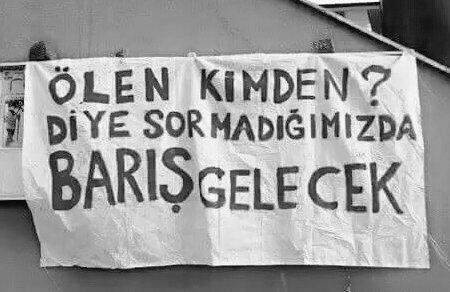 ÖLEN KİMDEN?
DİYE SORMADIĞIMIZDA
BARIŞ GELECEK